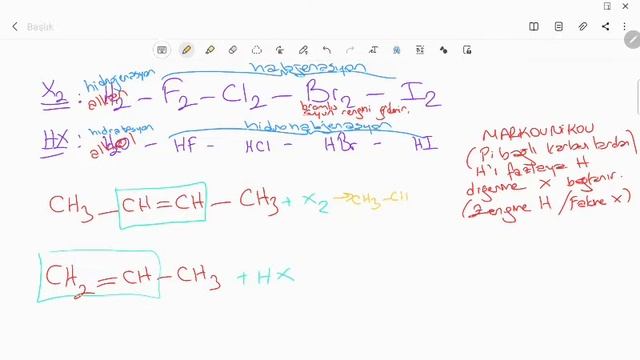 Başlık
hidrojenasyon halojenasyon
X2 : H2 – F2 – Cl2 – Br2 – I2
alkan
bromlu suyun rengini giderir.
hidratasyon hidrohalojenasyon
HX : H2O – HF – HCl – HBr – HI
alkol
MARKOVNIKOV
(Pi bağlı karbonlardan)
H'ı fazlaya H
diğerine X bağlanır.
(Zengine H / Fakire X)
CH3 – CH = CH – CH3 + X2 → CH3 – CH
CH2 = CH – CH3 + HX